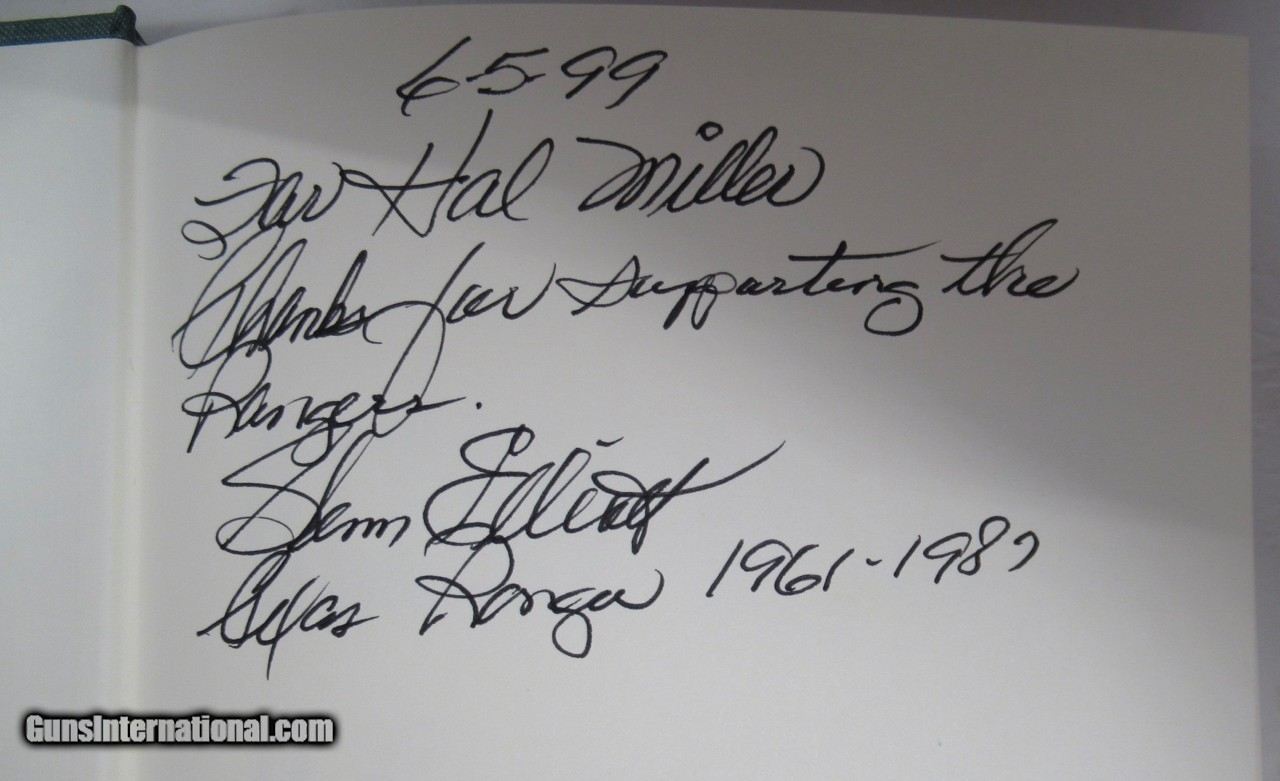 6-5-99
For Hal Miller
Thanks for supporting the
Rangers.
Glenn Elliott
Texas Ranger 1961-1987
GunsInternational.com